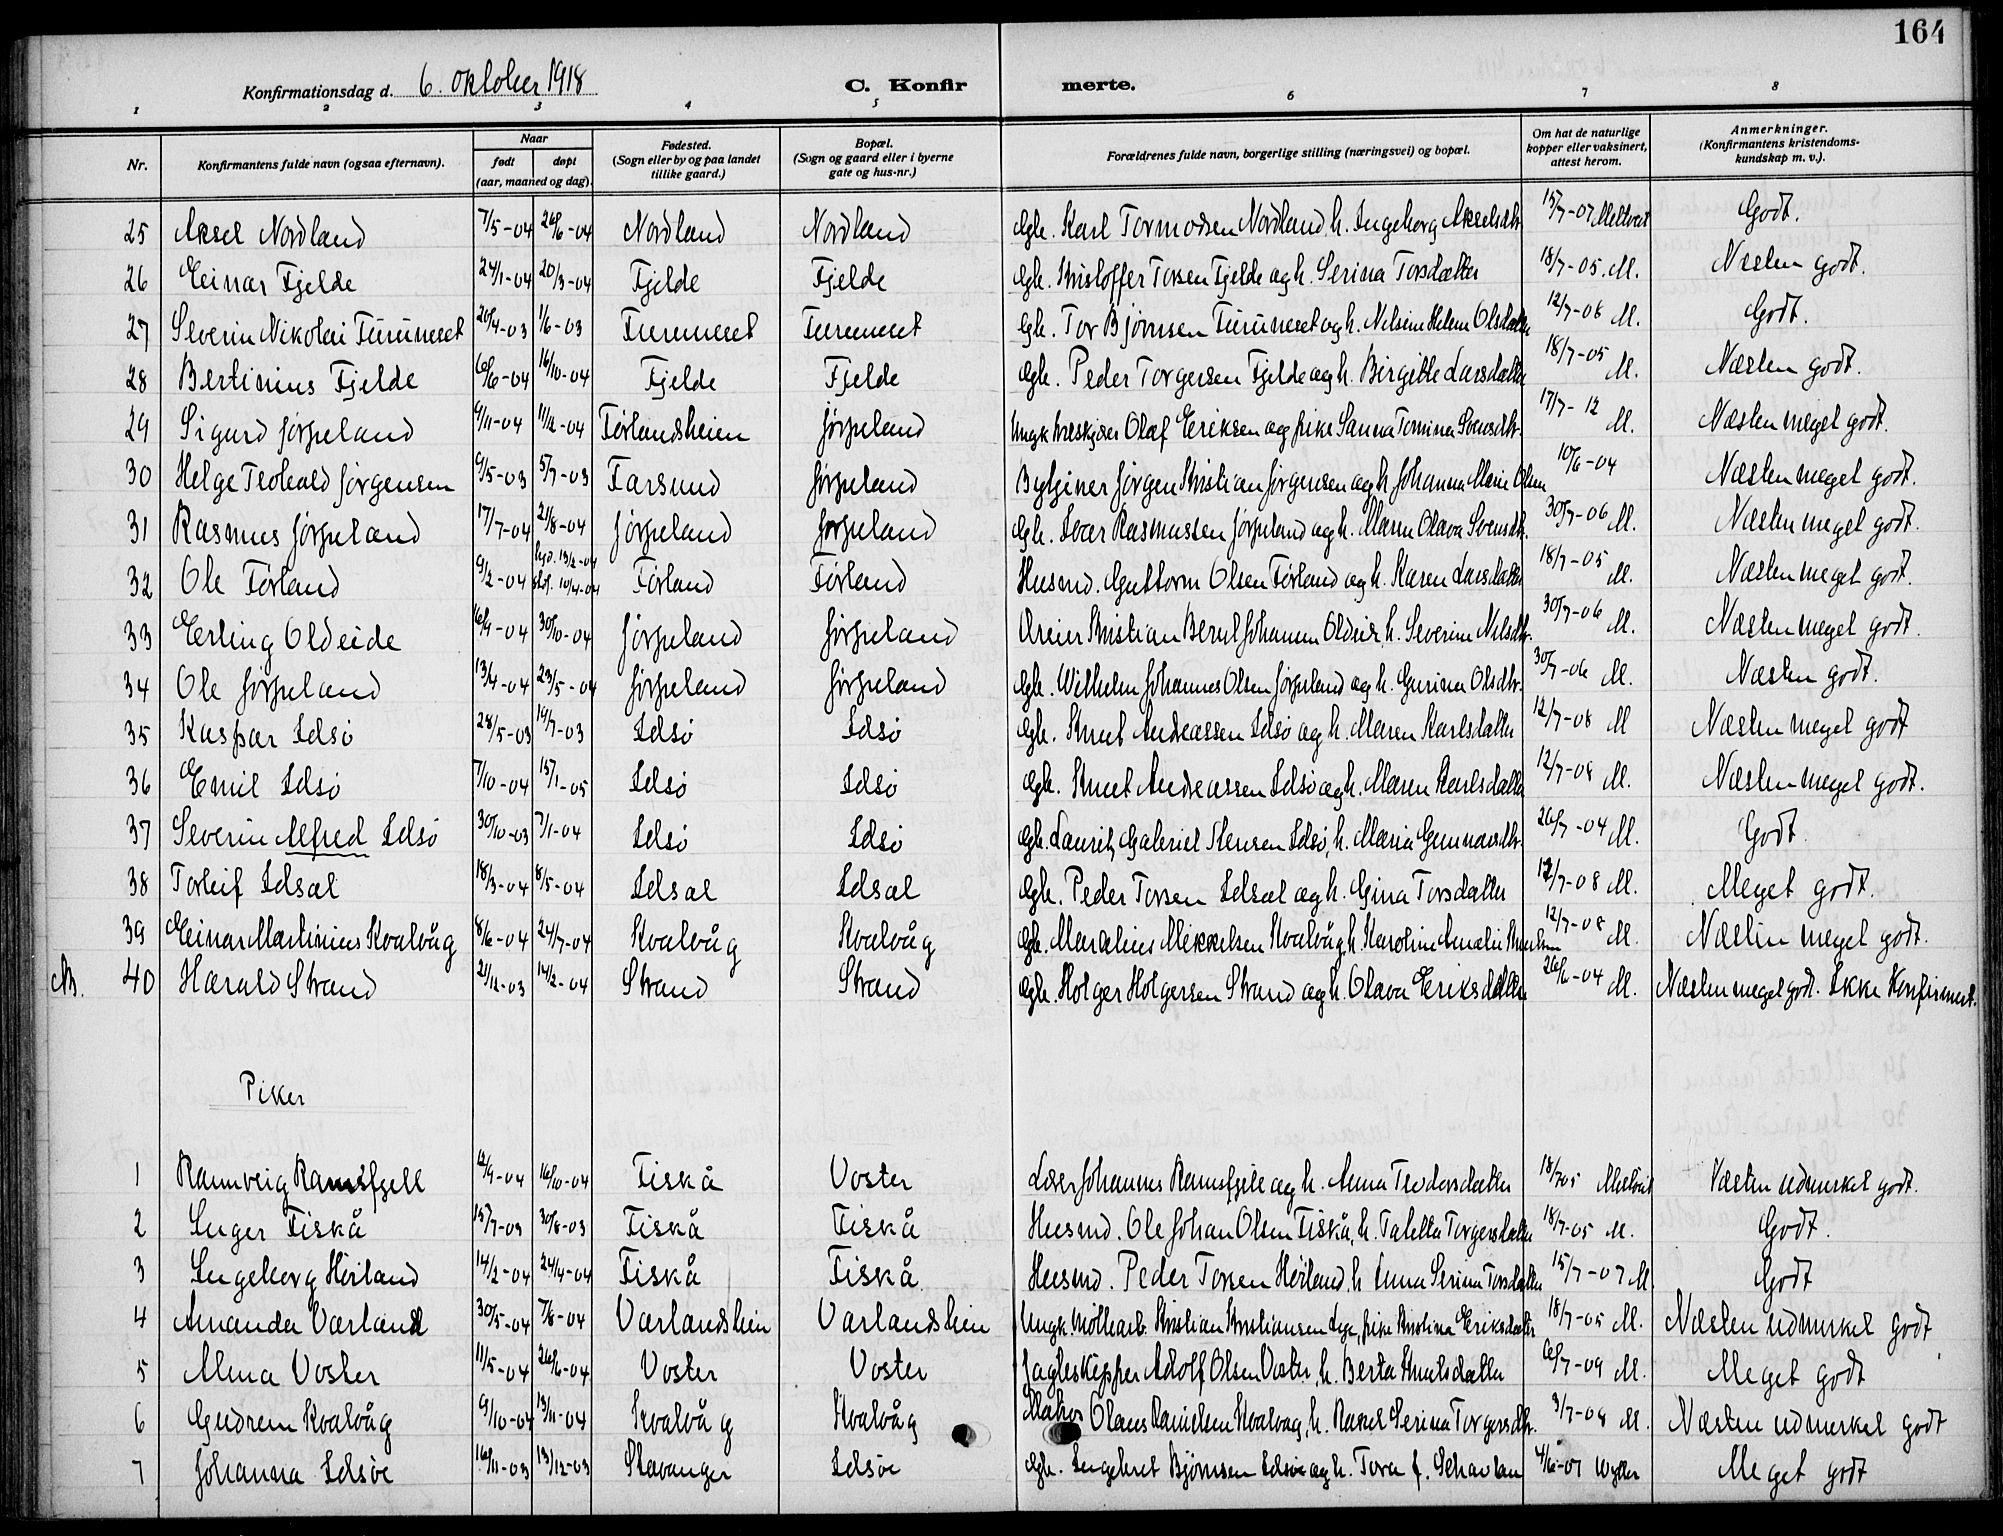 164
Konfirmationsdag d. 6. oktober 1918
C. Konfirmerte.
1 2 3 4 5 6 7 8
Nr. | Konfirmantens fulde navn (ogsaa efternavn). | Naar født døpt (aar, maaned og dag). | Fødested. (Sogn eller by og paa landet tillike gaard.) | Bopæl. (Sogn og gaard eller i byerne gate og hus-nr.) | Forældrenes fulde navn, borgerlige stilling (næringsvei) og bopæl. | Om hat de naturlige kopper eller vaksinert, attest herom. | Anmerkninger. (Konfirmantens kristendomskundskap m. v.).
25 Aksel Nordland 7/5-04 26/6-04 Nordland Nordland Gbr. Karl Tormodsen Nordland, h. Ingeborg Akselsdtr. 15/7-07 Meltveit Godt.
26 Einar Fjelde 24/1-04 20/3-04 Fjelde Fjelde Gbr. Kristoffer Torsen Fjelde og h. Serina Torsdatter 18/7-05. M. Næsten godt.
27 Severin Nikolai Furuneset 20/4-03 1/6-03 Furuneset Furuneset Gbr. Tor Bjørnsen Furuneset og h. Nilsine Helene Olsdatter 12/7-08 M. Godt.
28 Bertinius Fjelde 6/6-04 16/10-04 Fjelde Fjelde Gbr. Peder Torgersen Fjelde og h. Birgitte Larsdatter 18/7-05 M. Næsten godt.
29 Sigurd Jørpeland 9/11-04 11/12-04 Tørlandsheien Jørpeland Ungk. Olaf Eriksen og pike Sanna Tomina Svensdtr. 17/7-12 M. Næsten meget godt.
30 Helge Teobald Jørgensen 9/5-03 5/7-03 Farsund Jørpeland Jørgen Kristian Jørgensen og h. Johanna Marie Olsen 10/6-04 Næsten meget godt.
31 Rasmus Jørpeland 17/7-04 21/8-04 Jørpeland Jørpeland Gbr. Ivar Rasmussen Jørpeland og h. Maren Olava Svensdtr. 30/7-06 M. Næsten meget godt.
32 Ole Tørland 9/2-04 hjd. 13/2-04 stf. 10/4-04 Tørland Tørland Husmd. Guttorm Olsen Tørland og h. Karen Larsdatter 18/7-05 M. Næsten meget godt.
33 Erling Oldeide 16/9-04 30/10-04 Jørpeland Jørpeland Dreier Kristian Bernt Johansen Oldeide, h. Severine Nilsdtr. 30/7-06 M. Næsten meget godt.
34 Ole Jørpeland 13/4-04 23/5-04 Jørpeland Jørpeland Gbr. Wilhelm Johannes Olsen Jørpeland og h. Gurina Olsdtr. 30/7-06 M. Næsten godt.
35 Kaspar Idsø 28/5-03 19/7-03 Idsø Idsø Gbr. Knut Andreassen Idsø og h. Maren Karlsdatter 12/7-08 M Næsten meget godt
36 Emil Idsø 7/10-04 15/1-05 Idsø Idsø Gbr. Knut Andreassen Idsø og h. Maren Karlsdatter 12/7-08 M. Næsten meget godt.
37 Severin Alfred Idsø 30/10-03 7/1-04 Idsø Idsø Gbr. Laurits Gabriel Stensen Idsø, h. Maria Gunnarsdtr. 26/7-04 M. Godt.
38 Torleif Idsal 18/3-04 8/5-04 Idsal Idsal Gbr. Peder Torsen Idsal og h. Gina Torsdatter 12/7-08 M. Meget godt.
39 Einar Martinius Kvalvåg 8/6-04 24/7-04 Kvalvåg Kvalvåg Gbr. Mardelius Mikkelsen Kvalvåg, h. Karoline Amalie 12/7-08 M. Næsten meget godt.
40 Harald Strand 21/12-03 14/2-04 Strand Strand Gbr. Holger Holgersen Strand og h. Olava Eriksdatter 26/6-04 M. Næsten meget godt. Ikke Konfirmert.
Piker
1 Rannveig Ramsfjell 12/9-04 16/10-04 Fiskå Voster Lærer Johannes Ramsfjell og h. Anna Teodorsdatter 18/7 05 Meltveit Næsten udmerket godt.
2 Inger Fiskå 15/7-03 30/8-03 Fiskå Fiskå Husmd. Ole Johan Olsen Fiskå, h. Taletta Torgersdatter 18/7-05 M. Godt.
3 Ingeborg Høiland 14/2-04 24/4-04 Fiskå Fiskå Husmd. Peder Torsen Høiland, h. Anna Serina Torsdatter 15/7-07 M Godt
4 Amanda Varland 30/5-04 7/8-04 Varlandsheien Varlandsheien Ungk. Møllearb. Kristian Kristiansen Lye, pike Kristina Eriksdatter 18/7-05 M. Næsten udmerket godt
5 Alma Voster 11/5-04 26/6-04 Voster Voster Jagteskipper Adolf Olsen Voster, h. Berta Knutsdatter 6/7-09 M. Meget godt
6 Gudrun Kvalvåg 9/10-04 13/11-04 Kvalvåg Kvalvåg Matros Olaus Danielsen Kvalvåg, h. Rakel Serina Torgersdtr. 3/7-08 M. Næsten udmerket godt
7 Johanna Idsøe 16/11-03 13/12-03 Stavanger Idsøe Gbr. Ingebret Bjørnsen Idsøe og h. Tora f. 4/6-07 Meget godt